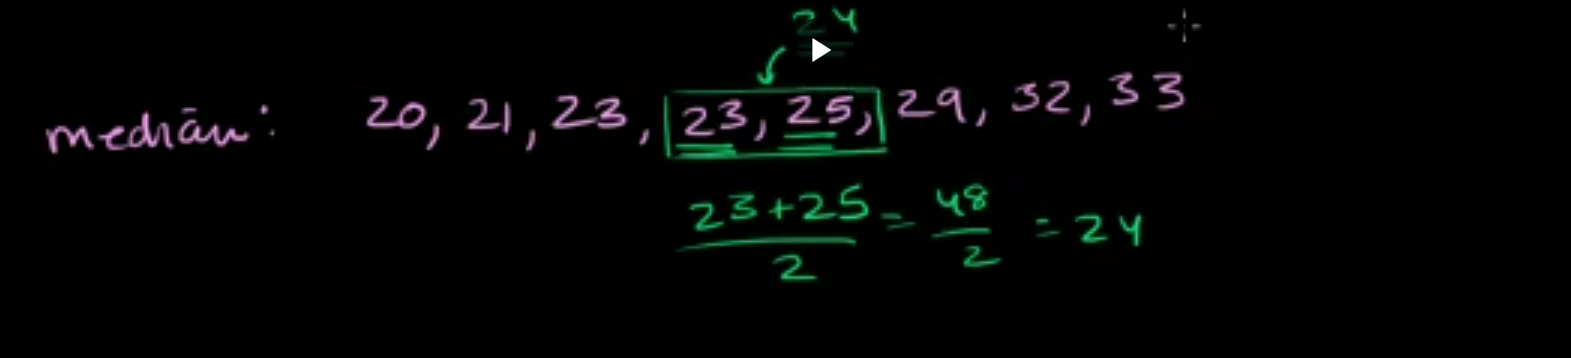 24
medián: 20, 21, 23, 23, 25, 29, 32, 33
23+25 = 48 = 24
2 2